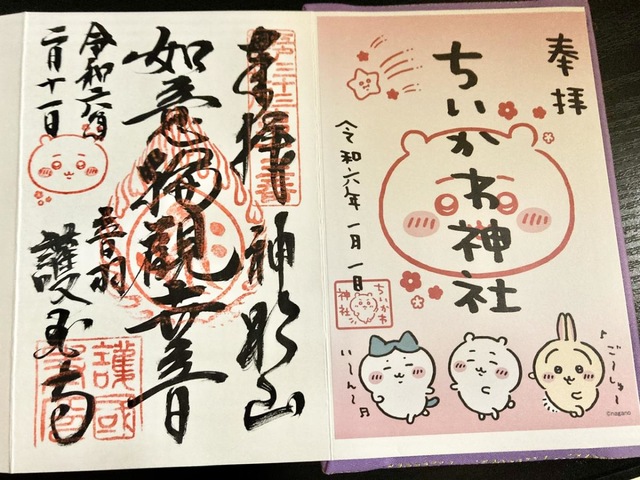 奉拝
ちいかわ神社
令和六年一月一日
ちいかわ
神社
♪ご〜しゅ〜
い〜ん〜日
©nagano
奉拝
神齢山
如意輪観世音
音羽
護国寺
令和六年
二月十一日
護國